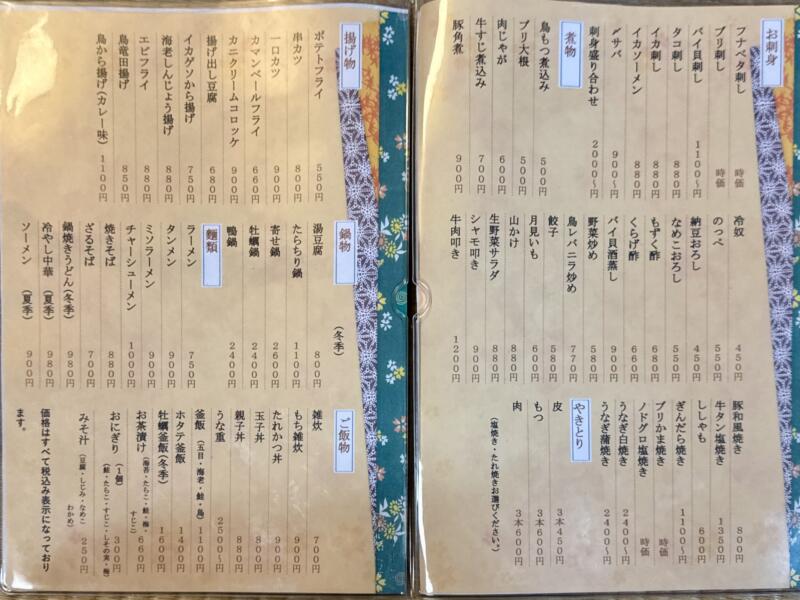 お刺身
フナベタ刺し 時価
ブリ刺し 時価
バイ貝刺し 1100~円
タコ刺し 880円
イカ刺し 880円
イカソーメン 880円
〆サバ 900~円
刺身盛り合わせ 2000~円
煮物
鳥もつ煮込み 500円
ブリ大根 500円
肉じゃが 600円
牛すじ煮込み 700円
豚角煮 900円
冷奴 450円
のっぺ 550円
納豆おろし 450円
なめこおろし 550円
もずく酢 680円
くらげ酢 660円
バイ貝酒蒸し 900円
野菜炒め 580円
鳥レバニラ炒め 770円
餃子 580円
月見いも 600円
山かけ 880円
生野菜サラダ 880円
シャモ叩き 900円
牛肉叩き 1200円
豚和風焼き 800円
牛タン塩焼き 1350円
ししゃも 600円
ぎんだら焼き 1100円
ブリかま焼き 時価
ノドグロ塩焼き 時価
うなぎ白焼き 2400~円
うなぎ蒲焼き 2400~円
やきとり
皮 3本450円
もつ 3本600円
肉 3本600円
(塩焼き・たれ焼きお選びください。)
揚げ物
ポテトフライ 550円
串カツ 800円
一口カツ 900円
カマンベールフライ 660円
カニクリームコロッケ 900円
揚げ出し豆腐 680円
イカゲソから揚げ 750円
海老しんじょう揚げ 880円
エビフライ 880円
鳥竜田揚げ 850円
鳥から揚げ(カレー味) 1100円
鍋物 (冬季)
湯豆腐 800円
たらちり鍋 1100円
寄せ鍋 2600円
牡蠣鍋 2400円
鴨鍋 2400円
麺類
ラーメン 750円
タンメン 900円
ミソラーメン 900円
チャーシューメン 1000円
焼きそば 880円
ざるそば 700円
鍋焼きうどん(冬季) 980円
冷やし中華 (夏季) 980円
ソーメン (夏季) 900円
ご飯物
雑炊 700円
もち雑炊 900円
たれかつ丼 900円
玉子丼 800円
親子丼 880円
うな重 2500~円
釜飯 (五目・海老・鮭・鳥) 1100円
ホタテ釜飯 1400円
牡蠣釜飯(冬季) 1600円
お茶漬け (海苔・たらこ・鮭・梅・すじこ) 660円
おにぎり (1個) 300円
(鮭・たらこ・すじこ・しその実・梅)
みそ汁 (豆腐・しじみ・なめこ わかめ) 250円
価格はすべて税込み表示になっており
ます。